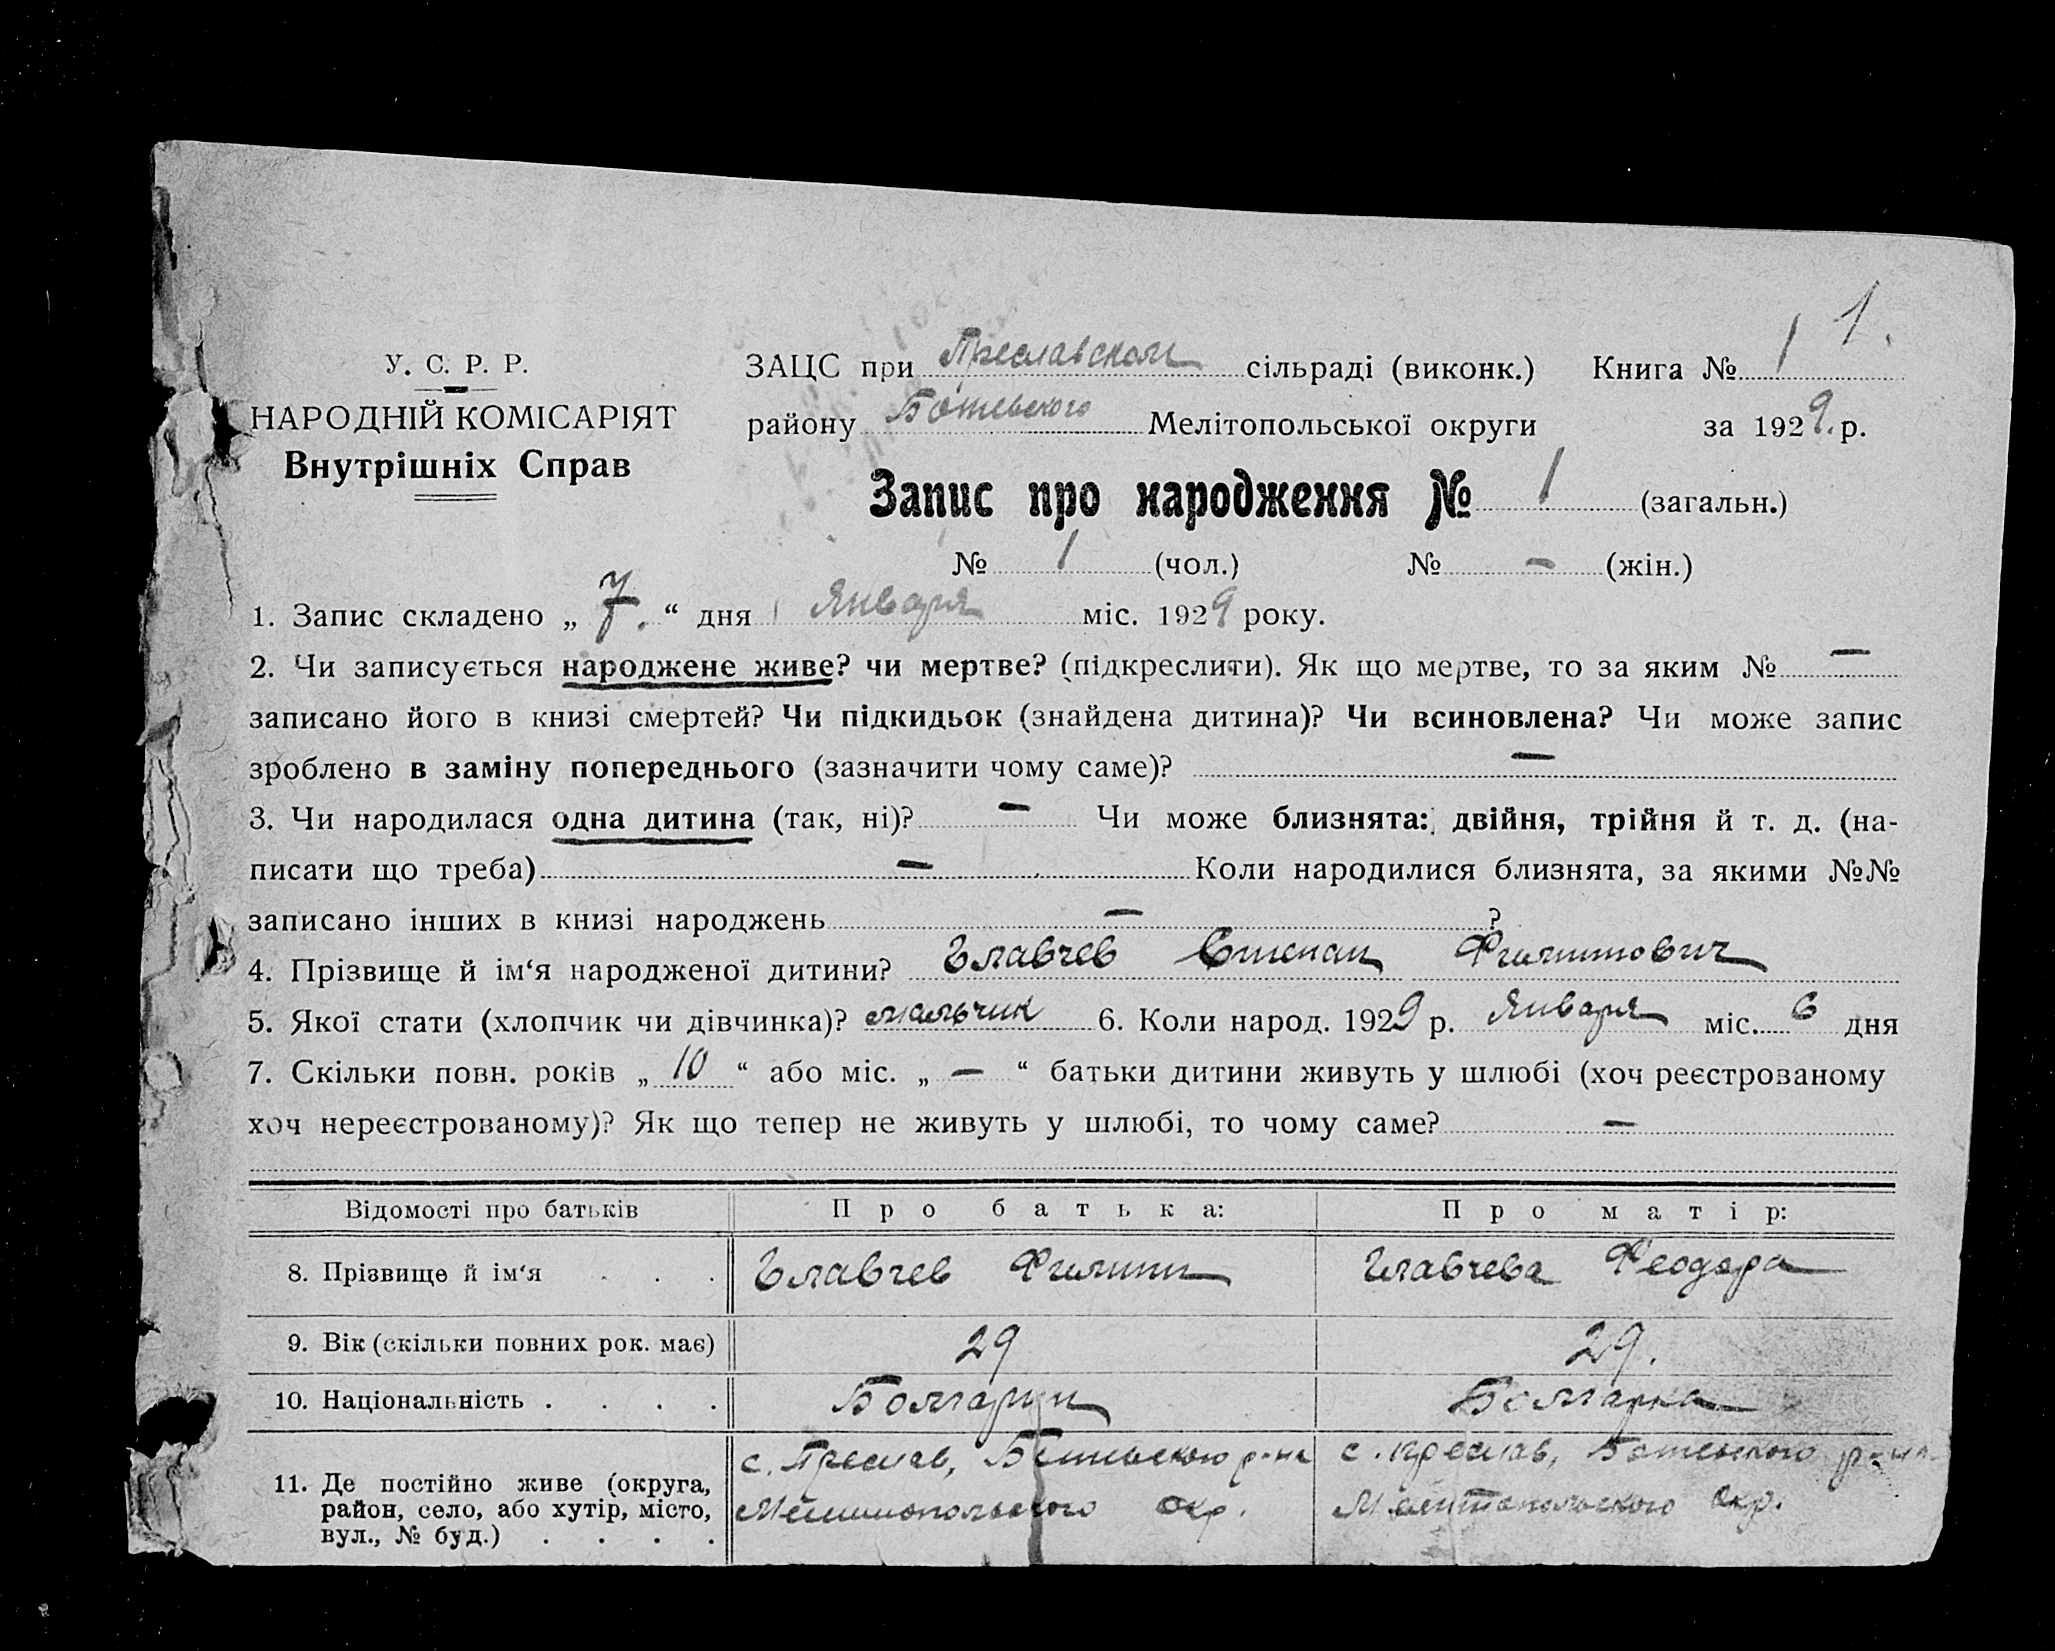 1.
У. С. Р. Р.
НАРОДНІЙ КОМІСАРІЯТ
Внутрішніх Справ
ЗАЦС при Преславском сільраді (виконк.) Книга № 1
району Ботевского Мелітопольської округи за 1929 р.
Запис про народження № 1 (загальн.)
№ 1 (чол.) № — (жін.)
1. Запис складено „ 7. “ дня Января міс. 1929 року.
2. Чи записується народжене живе? чи мертве? (підкреслити). Як що мертве, то за яким № —
записано його в книзі смертей? Чи підкидьок (знайдена дитина)? Чи всиновлена? Чи може запис
зроблено в заміну попереднього (зазначити чому саме)? —
3. Чи народилася одна дитина (так, ні)? — Чи може близнята: двійня, трійня й т. д. (на-
писати що треба) — Коли народилися близнята, за якими №№
записано інших в книзі народжень — ?
4. Прізвище й ім‘я народженої дитини? Главчев Степан Филиппович
5. Якої стати (хлопчик чи дівчинка)? мальчик 6. Коли народ. 1929 р. Января міс. 6 дня
7. Скільки повн. років „ 10 “ або міс. „ — “ батьки дитини живуть у шлюбі (хоч реєстрованому
хоч нереєстрованому)? Як що тепер не живуть у шлюбі, то чому саме? —
Відомості про батьків Про батька: Про матір:
8. Прізвище й ім‘я . . . Главчев Филипп Главчева Феодора
9. Вік (скільки повних рок. має) 29 29.
10. Національність . . . . Болгарин Болгарка
11. Де постійно живе (округа, район, село, або хутір, місто, вул., № буд.) . . . .
с. Преслав, Ботевского р-на Мелитопольского Окр.
с. Преслав, Ботевского р-на Мелитопольского Окр.